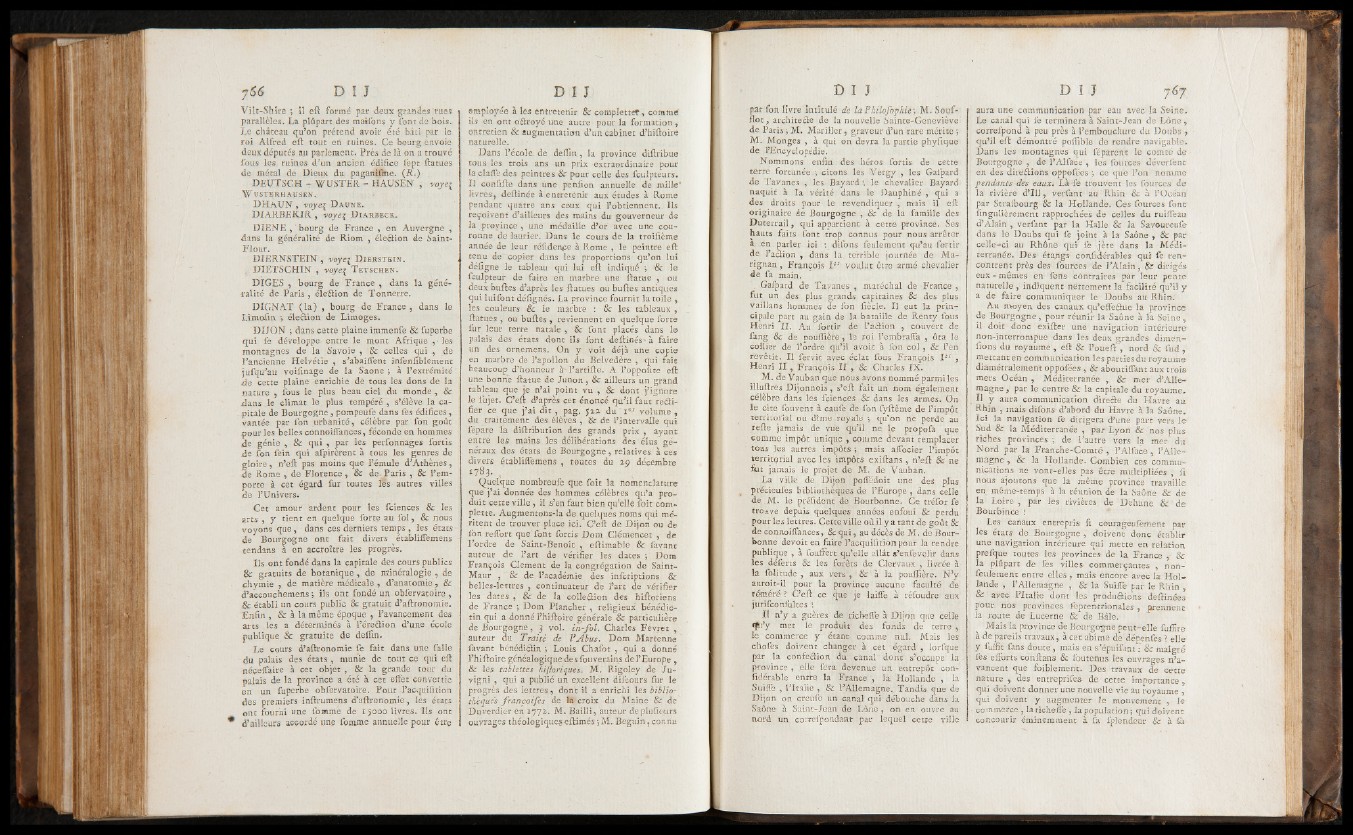 766 DIJ DIJ
Vilt-Shire ; il est formé par deux grandes rues
parallèles. La plûpart des maisons y sont de bois.
Le château qu'on prétend avoir été bâti par le
roi Alfred est tout en ruines. Ce bourg envoie
deux députés au parlement. Près de là on a trouvé
sous les ruines d'un ancien édifice sept statues
de métal de Dieux du paganisme. (R.)
DEUTSCH - WUSTER - HAUSEN , voyez
WUSTERHAUSEN.
DHAUN , voyez DAUNE.
DIARBEKIR , voyez DIARBECK.
DIENE , bourg de France , en Auvergne ,
dans la généralité de Riom , élection de Saint-
Flour.
DIERNSTEIN , voyez DIERSTEIN.
DIETSCHIN , voyez TETSCHEN.
DIGES , bourg de France , dans la géné-
ralité de Paris , élection de Tonnerre.
DIGNAT (la) , bourg de France , dans le
Limosin , élection de Limoges.
DIJON ; dans cette plaine immense & superbe
qui se développe entre le mont Afrique , les
montagnes de la Savoie , & celles qui , de
l'ancienne Helvétie , s'abaissent insensiblement
jusqu'au voisinage de la Saone ; à l'extrémité
de cette plaine enrichie de tous les dons de la
nature , sous le plus beau ciel du monde , &
dans le climat le plus tempéré , s'élève la ca-
pitale de Bourgogne , pompeuse dans ses édifices ,
vantée par son urbanité , célèbre par son goût
pour les belles connoissances , féconde en hommes
de génie , & qui , par les personnages sortis
de son sein qui aspirèrent à tous les genres de
gloire , n'est pas moins que l'émule d'Athènes ,
de Rome , de Florence , & de Paris , & l'em-
porte à cet égard sur toutes les autres villes
de l'Univers.
Cet amour ardent pour les sciences & les
arts , y tient en quelque sorte au sol , & nous
voyons que , dans ces derniers temps , les états
de Bourgogne ont fait divers établissemens
tendans à en accroître les progrès.
Ils ont fondé dans la capitale des cours publics
& gratuits de botanique , de minéralogie , de
chymie , de matière médicale , d'anatomie , &
d'accouchemens ; ils ont fondé un observatoire ,
& établi un cours public & gratuit d'astronomie.
Enfin , & à la même époque , l'avancement des
arts les a déterminés à l'érection d'une école
publique & gratuite de dessin.
Le cours d'astronomie se fait dans une salle
du palais des états , munie de tout ce qui est
nécessaire à cet objet , & la grande tour du
palais de la province a été à cet effet convertie
en un superbe observatoire. Pour l'acquisition
des premiers instrumens d'astronomie , les états
ont fourni une somme de 15000 livres. Ils ont
d'ailleurs accordé une somme annuelle pour être
employée à les entretenir & completter , comme
ils en ont octroyé une autre pour la formation ,
entretien & augmentation d'un cabinet d'histoire
naturelle.
Dans l'école de dessin , la province distribue
tous les trois ans un prix extraordinaire pour
la classe des peintres & pour celle des sculpteurs.
Il consiste dans une pension annuelle de mille
livres , destinée à entretenir aux études à Rome
pendant quatre ans ceux qui l'obtiennent. Ils
reçoivent d'ailleurs des mains du gouverneur de
la province , une médaille d'or avec une cou-
ronne de laurier. Dans le cours de la troisième
année de leur résidence à Rome , le peintre est
tenu de copier dans les proportions qu'on lui
désigne le tableau qui lui est indiqué ; & le
sculpteur de faire en marbre une statue , ou
deux bustes d'après les statues ou bustes antiques
qui lui sont désignés. La province fournit la toile ,
les couleurs & le marbre : & les tableaux ,
statues , ou bustes , reviennent en quelque sorte
sur leur terre natale , & sont placés dans le
palais des états dont ils sont destinés à faire
un des ornemens. On y voit déjà une copie
en marbre de l'apollon du Belvedère , qui fait
beaucoup d'honneur à l'artiste. A l'opposite est
une bonne statue de Junon , & ailleurs un grand
tableau que je n'ai point vu , & dont j'ignore
le sujet. C'est d'après cet énoncé qu'il faut recti-
fier ce que j'ai dit , pag. 322 du Ier volume ,
du traitement des élèves , & de l'intervalle qui
sépare la distribution des grands prix , ayant
entre les mains les délibérations des élus gé-
néraux des états de Bourgogne , relatives à ces
divers établissemens , toutes du 29 décembre
1783.
Quelque nombreuse que soit la nomenclature
que j'ai donnée des hommes célèbres qu'a pro-
duit cette ville , il s'en faut bien qu'elle soit com-
plette. Augmentons-la de quelques noms qui mé-
ritent de trouver place ici. C'est de Dijon ou de
son ressort que sont sortis Dom Clémencet , de
l'ordre de Saint-Benoît , estimable & savant
auteur de l'art de vérifier les dates ; Dom
François Clement de la congrégation de Saint-
Maur , & de l'académie des inscriptions &
belles-lettres , continuateur de l'art de vérifier
les dates , & de la collection des historiens
de France ; Dom Plancher , religieux bénédic-
tin qui a donné l'histoire générale & particulière
de Bourgogne , 3 vol. in-fol. Charles Févret ,
auteur du Traité de l'Abus. Dom Martenne
savant bénédictin ; Louis Chasot , qui a donné
l'histoire généalogique des souverains de l'Europe ,
& les tablettes historiques. M. Rigoley de Ju-
vigni , qui a publié un excellent discours sur le
progrès des lettres , dont il a enrichi les biblio-
theques françoises de la croix du Maine & de
Duverdier en 1772. M. Bailli , auteur de plusieurs
ouvrages théologiques estimés ; M. Beguin , connu
DIJ DIJ 767
par son livre intitulé de la Philosophie ; M. Souf-
flot , architecte de la nouvelle Sainte-Geneviève
de Paris ; M. Marillier , graveur d'un rare mérite ;
M. Monges , à qui on devra la partie physique
de l'Encyclopédie.
Nommons enfin des héros sortis de cette
terre fortunée , citons les Vergy , les Gaspard
de Tavanes , les Bayard ; le chevalier Bayard
naquit à la vérité dans le Dauphiné , qui a
des droits pour le revendiquer , mais il est
originaire de Bourgogne , & de la famille des
Duterrail , qui appartient à cette province. Ses
hauts faits sont trop connus pour nous arrêter
à en parler ici : disons seulement qu'au sortir
de l'action , dans la terrible journée de Ma-
rignan , François Ier voulut être armé chevalier
de sa main.
Gaspard de Tavanes , maréchal de France ,
fut un des plus grands capitaines & des plus
vaillans hommes de son siècle. Il eut la prin-
cipale part au gain de la bataille de Renty sous
Henri II. Au sortir de l'action , couvert de
sang & de poussière , le roi l'embrassa , ôta le
collier de l'ordre qu'il avoit à son col , & l'en
revêtit. Il servit avec éclat sous François Ier ,
Henri II , François II , & Charles IX.
M. de Vauban que nous avons nommé parmi les
illustres Dijonnois , s'est fait un nom également
célèbre dans les sciences & dans les armes. On
le cite souvent à cause de son système de l'impôt
territorial ou dîme royale ; qu'on ne perde au
reste jamais de vue qu'il ne le proposa que
comme impôt unique , comme devant remplacer
tous les autres impôts ; mais associer l'impôt
territorial avec les impôts existans , n'est & ne
fut jamais le projet de M. de Vauban.
La ville de Dijon possédoit une des plus
précieuses bibliothèques de l'Europe , dans celle
de M. le président de Bourbonne. Ce trésor se
trouve depuis quelques années enfoui & perdu
pour les lettres. Cette ville où il y a tant de goût &
de connoissances , & qui , au décès de M. de Bour-
bonne devoit en faire l'acquisition pour la rendre
publique , a souffert qu'elle allât s'ensevelir dans
les déserts & les forêts de Clervaux , livrée à
la solitude , aux vers , & à la poussière. N'y
auroit-il pour la province aucune faculté de
réméré ? C'est ce que je laisse à résoudre aux
jurisconsultes :
Il n'y a guères de richesse à Dijon que celle
qu'y met le produit des fonds de terre ,
le commerce y étant comme nul. Mais les
choses doivent changer à cet égard , lorsque
par la confection du canal dont s'occupe la
province , elle sera devenue un entrepôt con-
sidérable entre la France , la Hollande , la
Suisse , l'Italie , & l'Allemagne. Tandis que de
Dijon on creuse un canal qui débouche dans la
Saône à Saint-Jean de Lône , on en ouvre au
nord un correspondant par lequel cette ville
aura une communication par eau avec la Seine.
Le canal qui se terminera à Saint-Jean de Lône ,
correspond à peu près à l'embouchure du Doubs ,
qu'il est démontré possible de rendre navigable.
Dans les montagnes qui séparent le comté de
Bourgogne , de l'Alsace , les sources déversent
en des directions opposées ; ce que l'on nomme
pendants des eaux. Là se trouvent les sources de
la rivière d'Ill , versant au Rhin & à l'Océan
par Strasbourg & la Hollande. Ces sources sont
singulièrement rapprochées de celles du ruisseau
d'Alain , versant par la Halle & la Savoureuse
dans le Doubs qui se joint à la Saône , & par
celle-ci au Rhône qui se jète dans la Médi-
terranée. Des étangs considérables qui se ren-
contrent près des sources de l'Alain , & dirigés
eux-mêmes en sens contraires par leur pente
naturelle , indiquent nettement la facilité qu'il y
a de faire communiquer le Doubs au Rhin.
Au moyen des canaux qu'effectue la province
de Bourgogne , pour réunir la Saône à la Seine ,
il doit donc exister une navigation intérieure
non-interrompue dans les deux grandes dimen-
sions du royaume , est & l'ouest , nord & sud ,
mettant en communication les parties du royaume
diamétralement opposées , & aboutissant aux trois
mers Océan , Méditerranée , & mer d'Alle-
magne , par le centre & la capitale du royaume.
Il y aura communication directe du Havre au
Rhin , mais disons d'abord du Havre à la Saône.
Ici la navigation se dirigera d'une part vers le
Sud & la Méditerranée , par Lyon & nos plus
riches provinces ; de l'autre vers la mer du
Nord par la Franche-Comté , l'Alsace , l'Alle-
magne , & la Hollande. Combien ces commu-
nications ne vont-elles pas être multipliées , si
nous ajoutons que la même province travaille
en même-temps à la réunion de la Saône & de
la Loire , par les rivières de Dehune & de
Bourbince :
Les canaux entrepris si courageusement par
les états de Bourgogne , doivent donc établir
une navigation intérieure qui mette en relation
presque toutes les provinces de la France , &
la plûpart de ses villes commerçantes , non-
seulement entre elles , mais encore avec la Hol-
lande , l'Allemagne , & la Suisse par le Rhin ,
& avec l'Italie dont les productions destinées
pour nos provinces septentrionales , prennent
la route de Lucerne & de Bâle.
Mais la province de Bourgogne peut-elle suffire
à de pareils travaux , à cet abîme de dépenses ? elle
y suffit sans doute , mais en s'épuisant : & malgré
ses efforts constans & soutenus les ouvrages n'a-
vancent que foiblement. Des travaux de cette
nature , des entreprises de cette importance ,
qui doivent donner une nouvelle vie au royaume ,
qui doivent y augmenter le mouvement , le
commerce , la richesse , la population ; qui doivent
concourir éminemment à sa splendeur & à sa